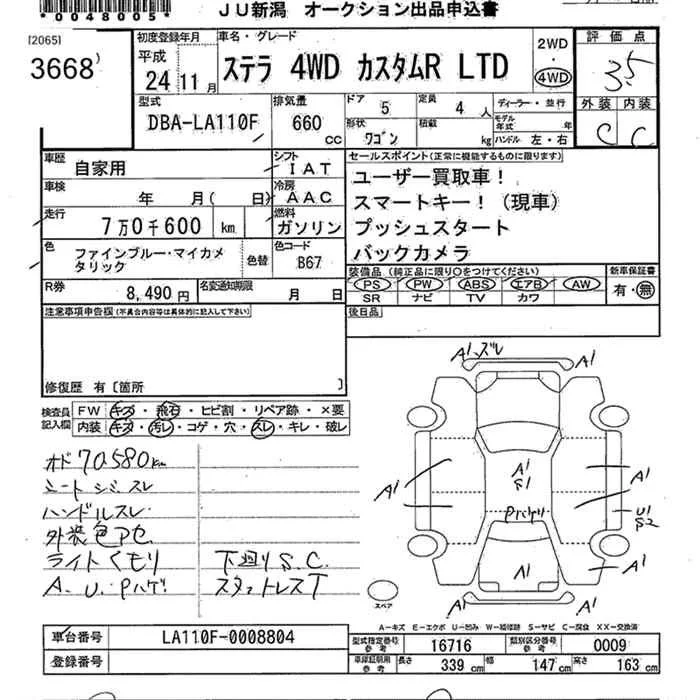 *0048005*
JU新潟 オークション出品申込書
[2065]
3668
初度登録年月
平成
24 11 月
車名・グレード
ステラ 4WD カスタムR LTD
2WD
・
4WD
評価点
3.5
外装 内装
C C
型式
DBA-LA110F
排気量
660 cc
ドア 5
定員 4 人
形状 ワゴン
積載 kg
ディーラー・並行
モデル年式 年
ハンドル 左・右
車歴 自家用
シフト IAT
車検 年 月( 日)
冷房 AAC
走行 7万0千600 km
燃料 ガソリン
色 ファインブルー・マイカメタリック
色替
色コード B67
R券 8,490円
名変通知期限 月 日
セールスポイント(正常に機能するものに限ります)
ユーザー買取車!
スマートキー!(現車)
プッシュスタート
バックカメラ
装備品(純正品に限り○をつけてください)
PS PW ABS エアB AW
SR ナビ TV カワ
新車保証書
有・無
後日品
注意事項申告欄(不具合内容等は具体的に記入して下さい)
修復歴 有〔箇所 〕
検査員記入欄
FW キズ・飛石・ヒビ割・リペア跡・×要
内装 キズ・汚レ・コゲ・穴・スレ・キレ・破レ
オド 70580km
シートシミ スレ
ハンドルスレ
外装色アセ
ライトくモリ
下廻りS.C.
A.U.Pハゲ
スタットレスT
A1 ズレ A1
A1 A1
A1 S1
Pハゲ
U1 S2
A1 A1
A1 A1
スペア
A-キズ E-エクボ U-凹み W-補修跡 S-サビ C-腐食 XX-交換済
車台番号 LA110F-0008804
登録番号
型式指定番号 参考 16716
類別区分番号 参考 0009
車庫証明用 参考 長さ 339 cm 幅 147 cm 高さ 163 cm